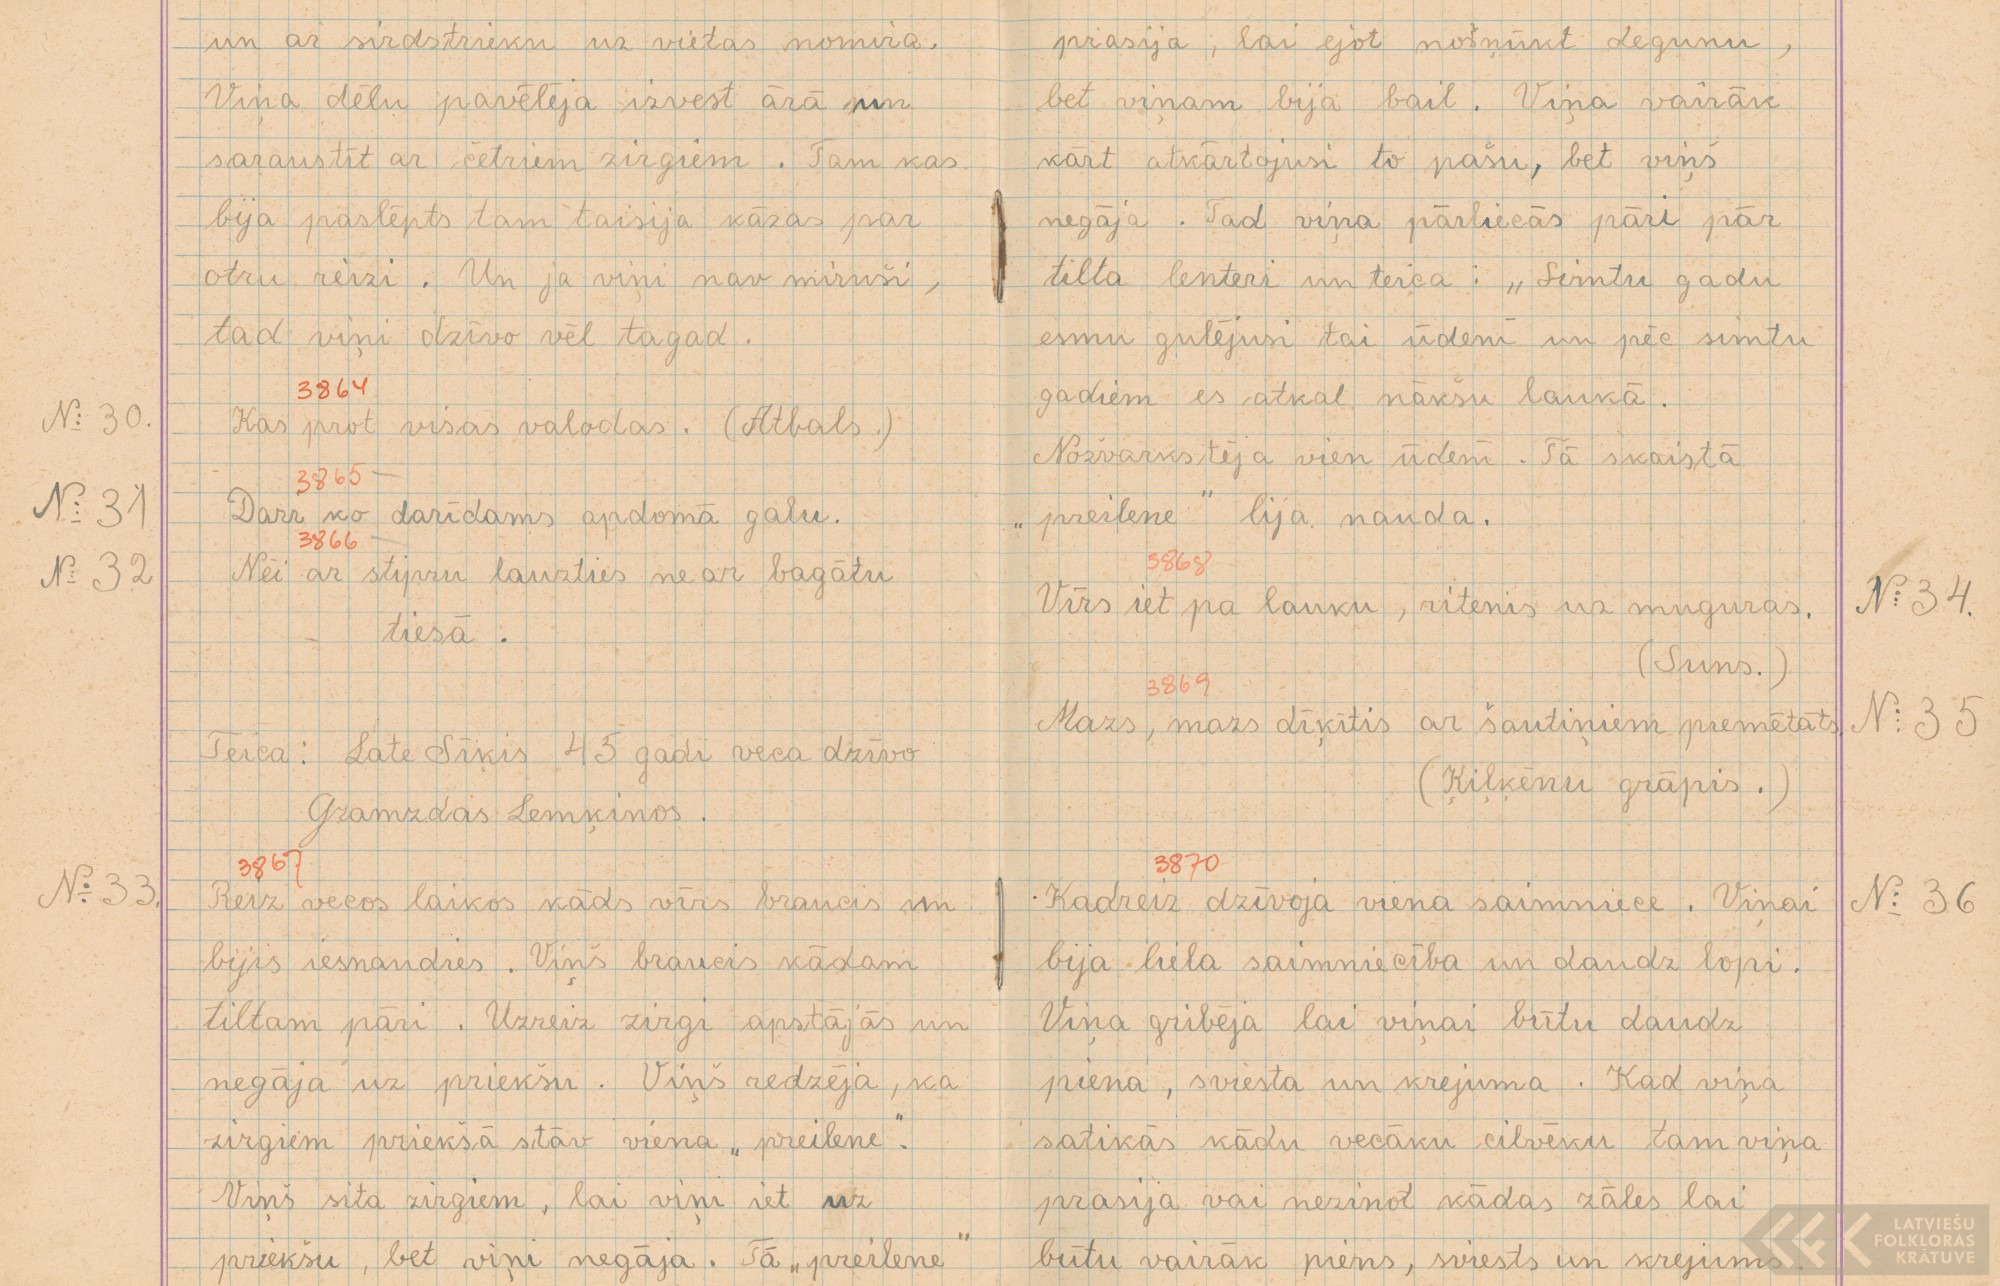 un ar sirdstrieku uz vietas nomira.
Viņa dēlu pavēlēja izvest ārā un
saraustīt ar četriem zirgiem. Tam kas
bija paslēpts tam taisija kāzas par
otru reizi. Un ja viņi nav miruši,
tad viņi dzīvo vēl tagad.
3864
№ 30. Kas prot visas valodas. (Atbals.)
3865 —
№ 31 Darr ko darīdams apdomā galu.
3866 —
№ 32 Nei ar stipru lauzties ne ar bagātu
tiesā.
Teica: Late Sīkis 45 gadi veca dzīvo
Gramzdas Lemķinos.
3867
№ 33. Reiz vecos laikos kāds vīrs braucis un
bijis iesnaudies. Viņš braucis kādam
tiltam pāri. Uzreiz zirgi apstājās un
negāja uz priekšu. Viņš redzēja, ka
zirgiem priekšā stāv viena „preilene".
Viņš sita zirgiem, lai viņi iet uz
priekšu, bet viņi negāja. Tā „preilene"
prasija, lai ejot nošņūkt degunu,
bet viņam bija bail. Viņa vairāk
kārt atkārtojusi to pašu, bet viņš
negāja. Tad viņa pārliecās pāri pār
tilta lenteri un teica: „Simtu gadu
esmu gulējusi tai ūdenī un pēc simtu
gadiem es atkal nākšu laukā.
Nožvarkstēja vien ūdenī. Tā skaistā
„preilene" bija nauda.
3868
Vīrs iet pa lauku, ritenis uz muguras. № 34.
(Suns.)
3869
Mazs, mazs dīķītis ar šautiņiem piemētāts. № 35
(Ķiļķēnu grāpis.)
3870
Kadreiz dzīvoja viena saimniece. Viņai № 36
bija liela saimniecība un daudz lopi.
Viņa gribēja lai viņai būtu daudz
piena, sviesta un krejuma. Kad viņa
satikās kādu vecāku cilvēku tam viņa
prasija vai nezinot kādas zāles lai
būtu vairāk piens, sviests un krejums.
LATVIEŠU
FOLKLORAS
KRĀTUVE